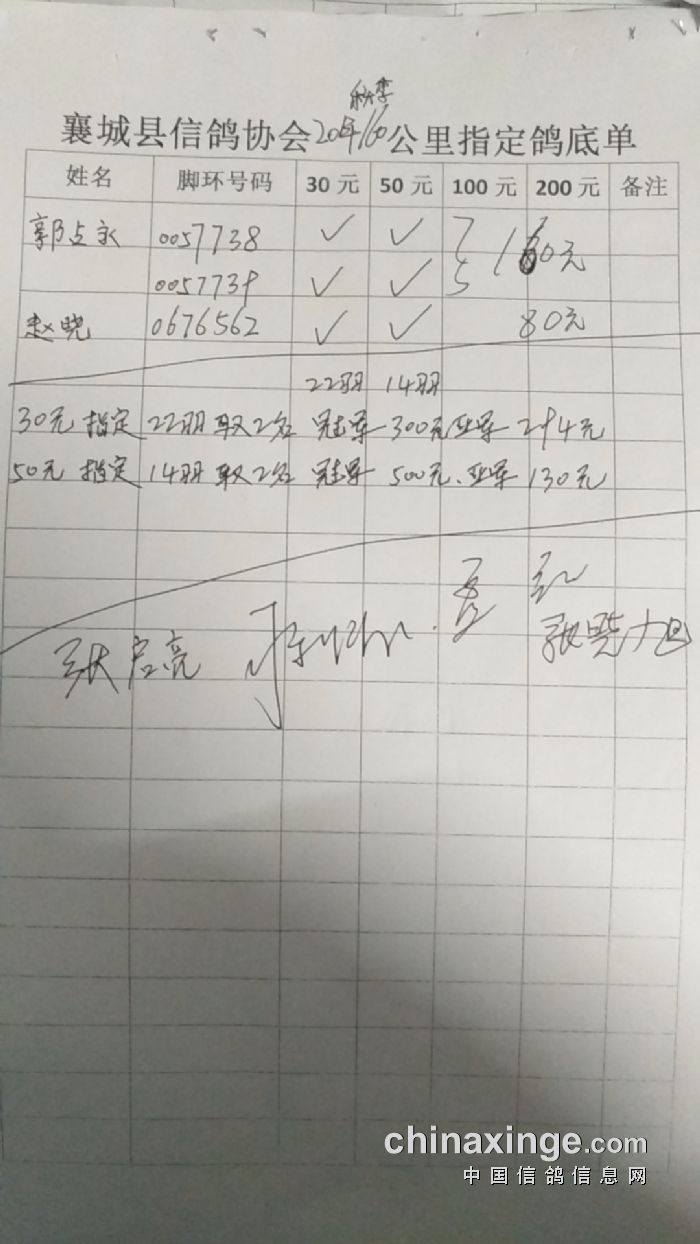 秋季
襄城县信鸽协会20年160公里指定鸽底单
姓名 脚环号码 30元 50元 100元 200元 备注
郭占永 0057738 ✓ ✓ 160元
0057739 ✓ ✓
赵晓 0676562 ✓ ✓ 80元
22羽 14羽
30元 指定 22羽 取2名 冠军 300元 亚军 294元
50元 指定 14羽 取2名 冠军 500元、亚军 130元
张启亮 张晓旭
chinaxinge.com
中国信鸽信息网